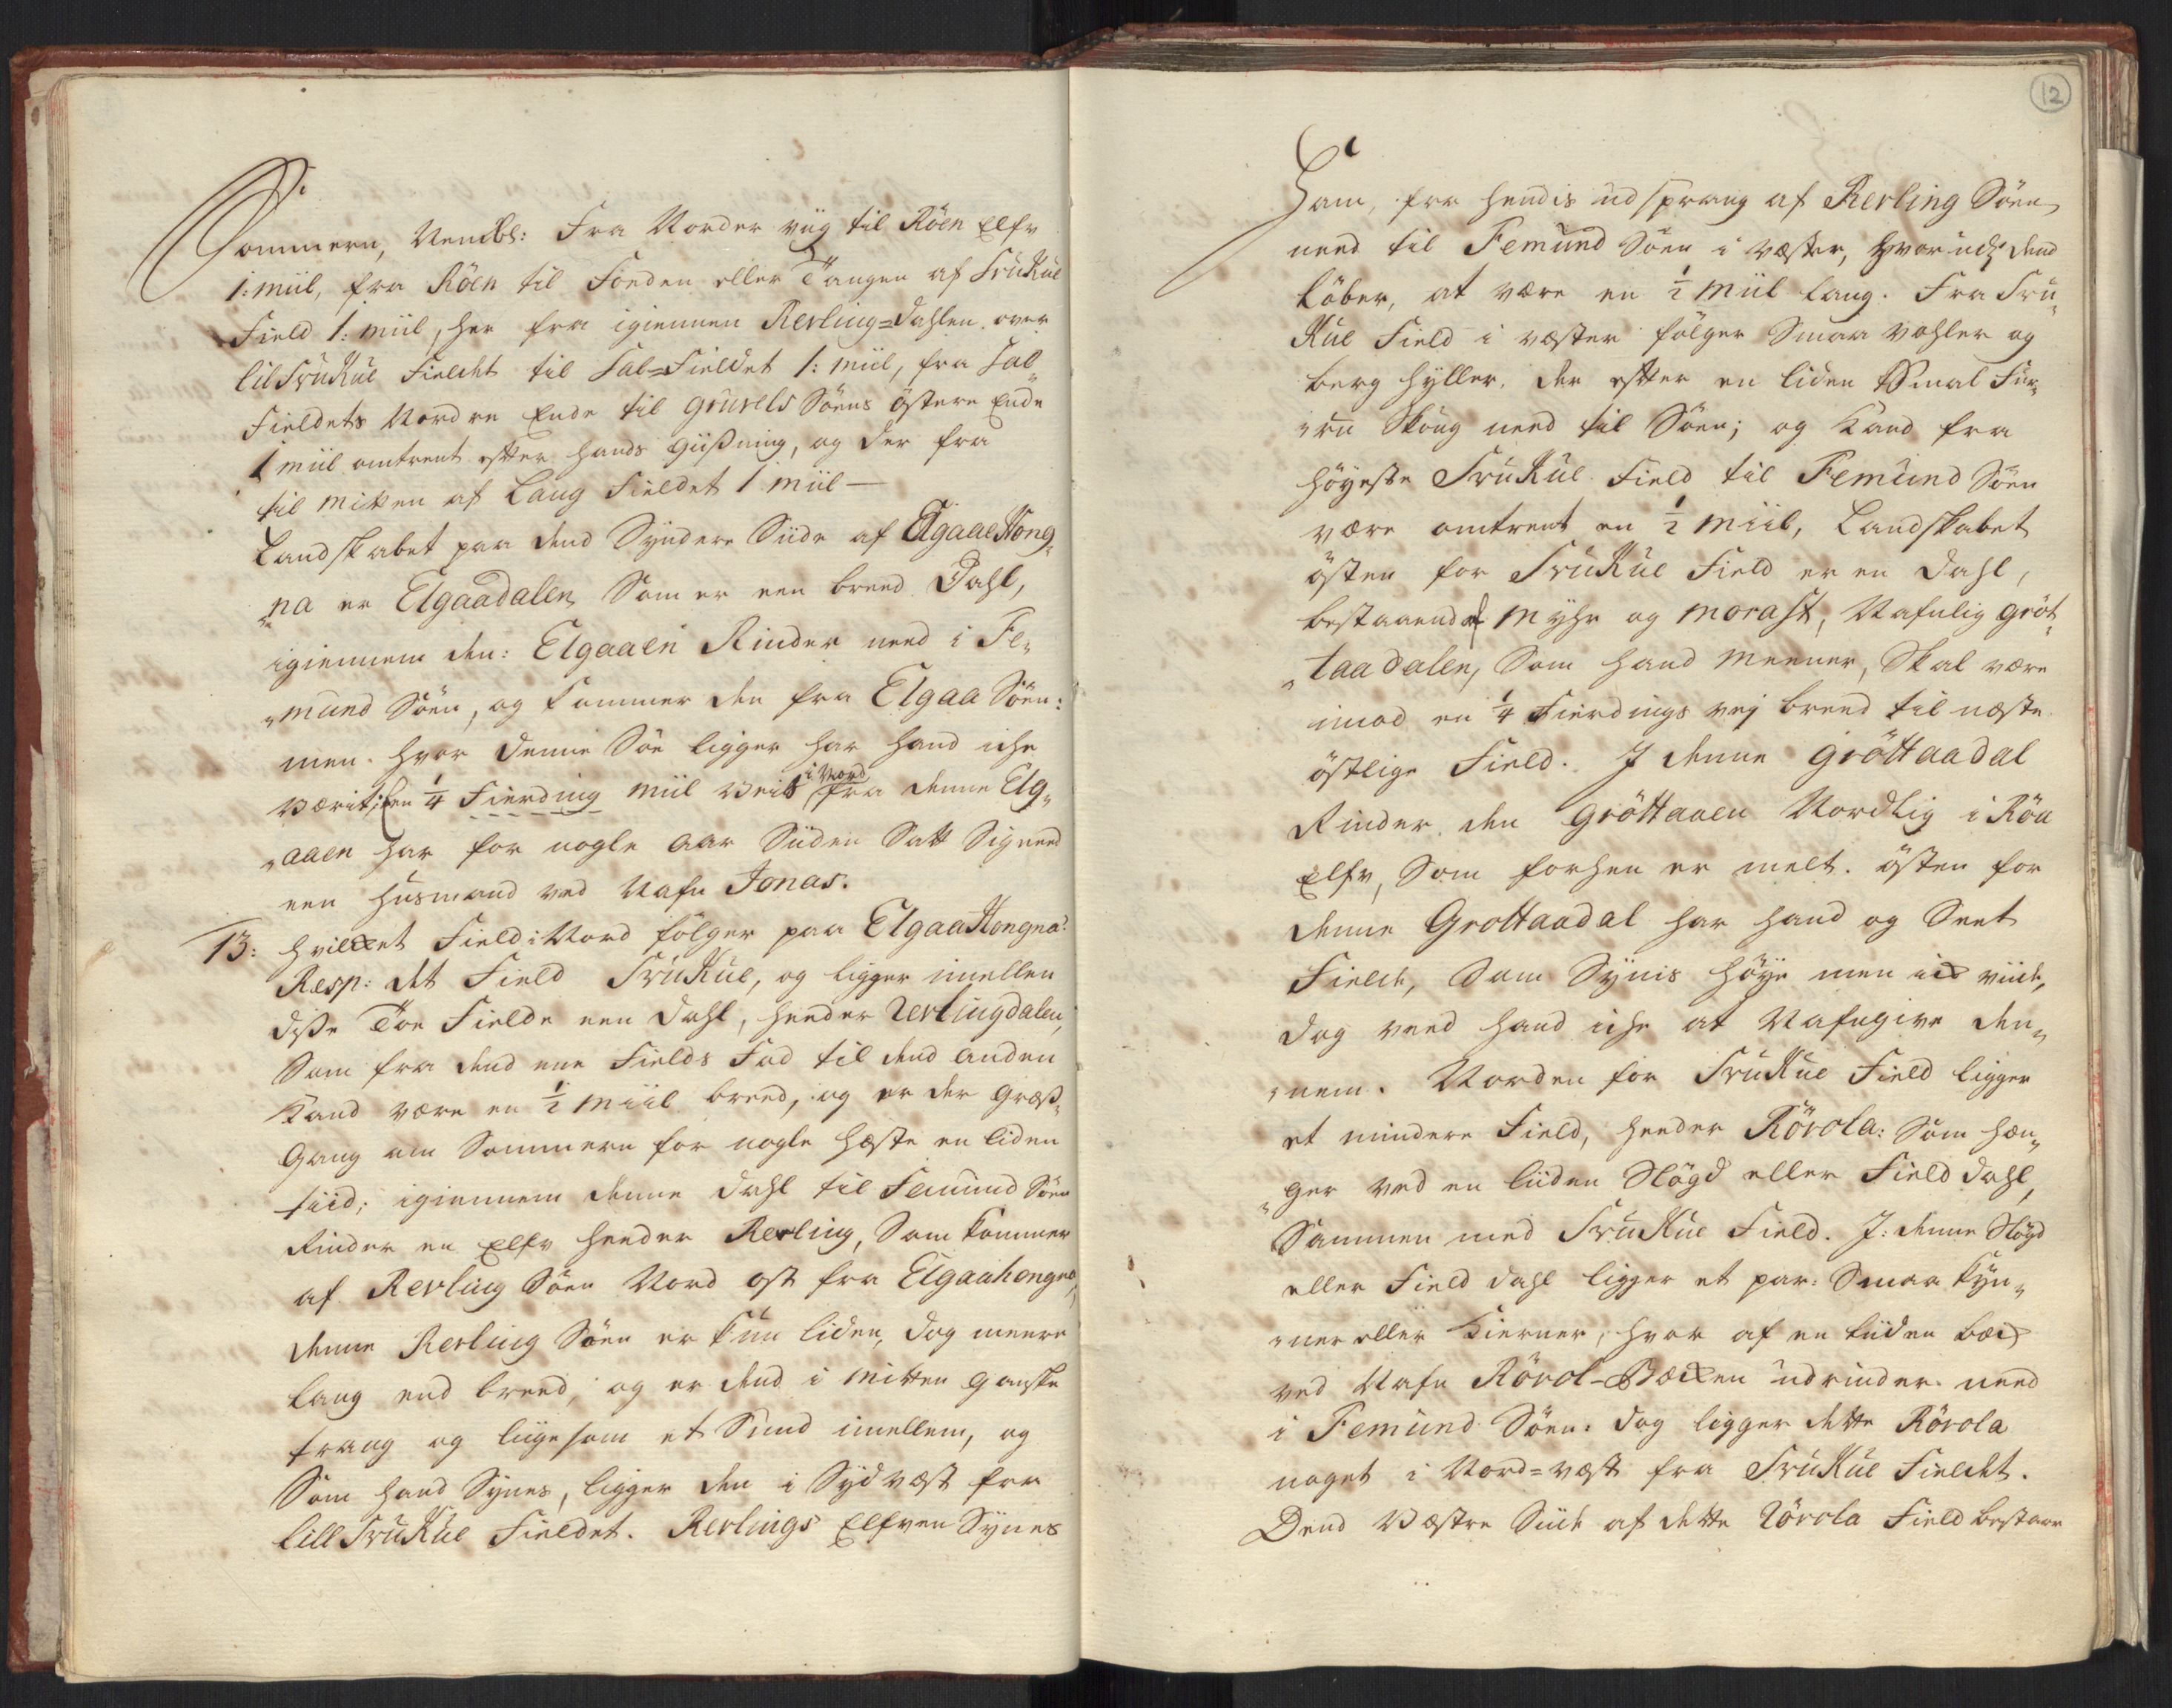 Sommeren, Nembl: Fra Norder viig til Röen Elfv
1: miil, fra Röen til Fonden eller Tangen af SvuKue
Field 1: miil, her fra igiennen Revling=Dahlen over
lilSvuKue Fieldet til Sal=Fieldet 1: miil, fra Sal„
Fieldets Nordre Ende til gruvels Söens östere Ende
1 miil omtrent effter hands güßning, og der fra
til mitten af Lang Fieldet 1 miil —
Landskabet paa dend Syndere Siide af ElgaaeHong„
„na er Elgaadalen, Som er een breed Dahl,
igiennem den: Elgaaen Rinder need i Fe„
„mund Söen, og kommer den fra Elgaa Söen:
men. hvor denne Söe ligger har hand iche
værit; En 1/4 Fierding miil Veis i Nord fra denne Elg„
„aaen har for nogle aar Siiden Satt Sig need
een Huusmand ved Nafn Jonas.
13: hvilcket Field i Nord fölger paa ElgaaHongna?
Resp: det Field SvuKue, og ligger imellem
diße Toe Fielde een Dahl, heeder Revlingdalen,
Som fra dend eene Fields Fod til dend anden
Kand være en 1/2 Miil breed, og er der græß„
Gang om Sommeren for nogle hæste en liden
tiid; igiennem denne Dahl til Femund Söen
Rinder en Elfv heeder Revling, Som kommer
af Revling Söen Nord ost fra Elgaahongna,
denne Revling Söen er kun liden, dog meere
lang end breed, og er dend i mitten ganske
trang og liigesom et Sund imellem, og
Som hand Synes, ligger den i Sydvæst fra
lill SvuKue Fieldet. Revlings Elfven Synes
12
Ham, fra hendis udsprang af Revling Söen
need til Femund Söen i væster, hvorudj dend
löber, at være en 1/2 Miil lang. Fra Svu„
Kue Field i væster fölger Smaa Vohler og
berg hyller, der effter en liden Smal Fur„
„ru Skoug need til Söen; og Kand fra
höyeste SvuKue Field til Femund Söen
være omtrent en 1/2 Miil, Landskabet
östen for SvuKue Field er en Dahl,
bestaaende af Myhr og Morast, Nafnlig Gröt„
„taadalen, Som hand Meener, Skal være
imod en 1/4 Fierdings vej breed til næste
östlige Field. I denne Gröttaadal
Rinder den Gröttaaen Nordlig i Röe
Elfv, Som forhen er melt. östen for
denne Grottaadal har hand og Seet
Fielde, Som Synis höye men ick viide,
dog veed hand iche at Nafngive den„
„nem. Norden for SvuKue Field ligger
et mindere Field, heeder Rövola: Som hæn„
„ger ved en liiden Högd eller Field Dahl,
Sammen med SvuKue Field. I: denne Högd
eller Field Dahl ligger et par: Smaa Kyn„
„ner eller Kierner, hvor af en liiden bæck
ved Nafn Rövol-Bæcken udrinder need
i Femund Söen: dog ligger dette Rövola
noget i Nord=væst fra SvuKue Fieldet.
Dend Væstre Siide af dette Rövola Field bestaar